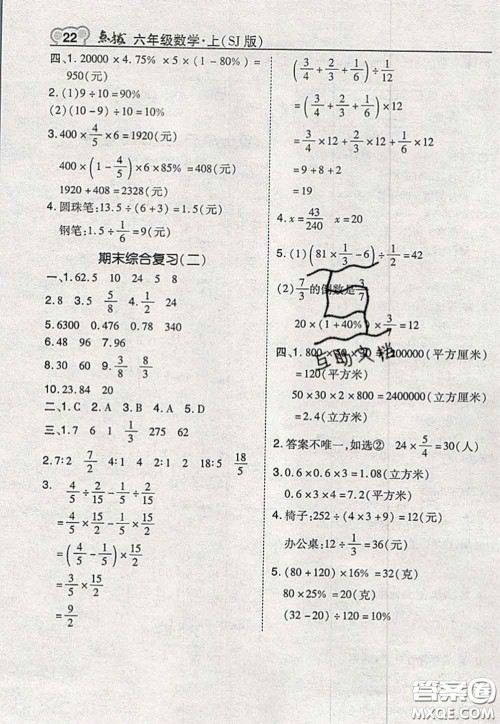 22 点拨 六年级数学·上(SJ版)
四、1. 20000×4.75% ×5×(1-80%)=
950(元)
2. (1)9÷10=90%
(2)(10-9)÷10=10%
3. 400×4/5×6=1920(元)
400×(1-4/5)×6×85%=408(元)
1920+408=2328(元)
4. 圆珠笔:13.5÷(6+3)=1.5(元)
钢笔:1.5÷1/6=9(元)
期末综合复习(二)
一、1. 62.5 10 24 5 8
2. 8 3.5 5/8 1/2 24
5. 6300 0.476 780
6. 48 96 7. 96
8. 30 60 9. 3/8 8/3
10. 23.84 20
二、1. C 2. A 3. B 4. C
三、1. 1/6 7 1 275 62
2. 7:2 7/2 4:1 4 2 18:5 18/5
3. 4/5÷2/15-1/5÷2/15
=4/5×15/2-1/5×15/2
=(4/5-1/5)×15/2
=3/5×15/2
=9/2
(3/4+2/3+1/6)÷1/12
=(3/4+2/3+1/6)×12
=3/4×12+2/3×12+1/6×12
=9+8+2
=19
4. x=43/240 x=20
5. (1)(81×1/3-6)÷1/2=42
(2)7/3的倒数是3/7
20×(1+40%)×3/7=12
四、1. 800
2400000(平方厘米)
=240(平方米)
50×30×2=2400000(平方厘米)
=2.4(平方米)
2. 答案不唯一,如选② 24×5/4=30(人)
3. 0.6×0.6×3=1.08(立方米)
0.6×3×3=5.4(平方米)
4. 椅子:252÷(4×3+9)=12
办公桌:12÷1/3=36(元)
5. (80+120)×16%=32(克)
80×15%=20(克)
(32-20)÷120=10%
互助文档
答案圈
MXQE.COM